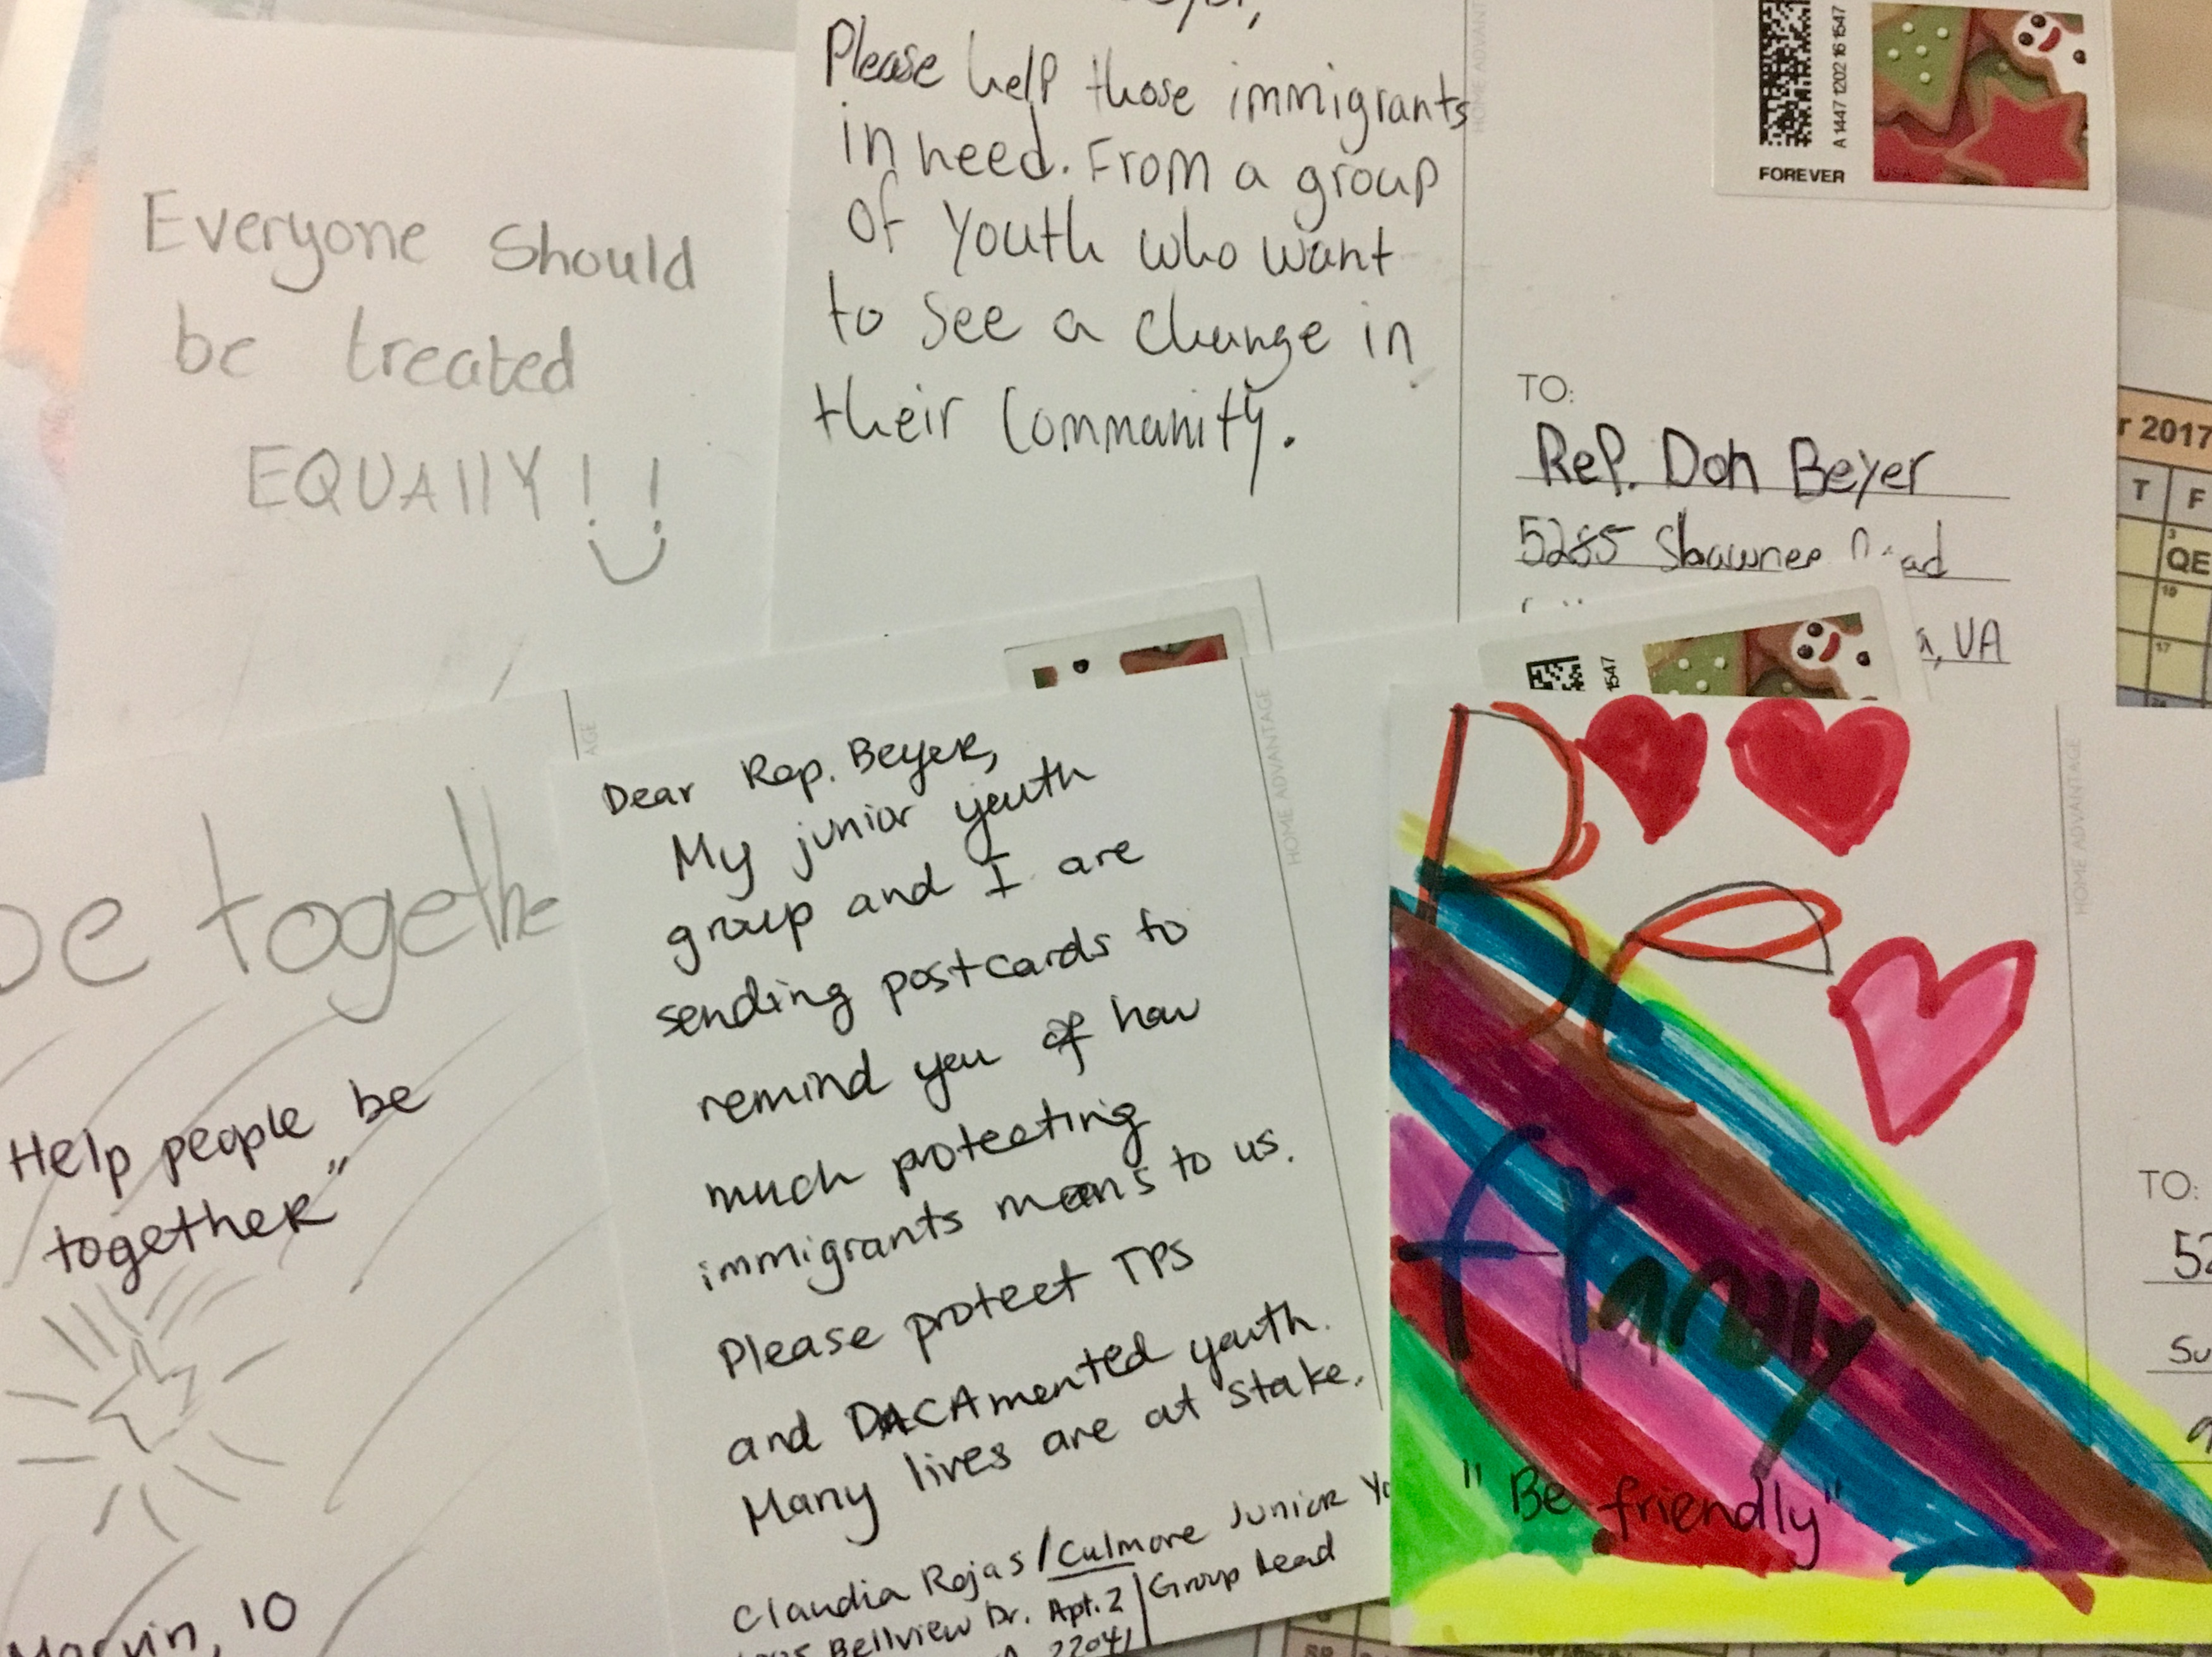 Everyone should
be treated
EQUAllY!!
Please help those immigrants
in need. From a group
of Youth who want
to see a change in
their Community.
HOME ADVANTAGE
A 1447 1202 16 1547
FOREVER
USA
TO:
Rep. Don Beyer
5285 Shawnee
VA
2017
T F
3
QE
10
17
24
be togethe
Help people be
together"
Marvin, 10
AGE
Dear Rep. Beyer,
My junior youth
group and I are
sending postcards to
remind you of how
much protecting
immigrants means to us.
Please protect TPS
and DACAmented youth.
Many lives are at stake.
Claudia Rojas/Culmore Junior Yo
Bellview Dr. Apt. 2 Group Lead
22041
HOME ADVANTAGE
1547
Be
"Be friendly"
HOME ADVANTAGE
TO:
52
Su